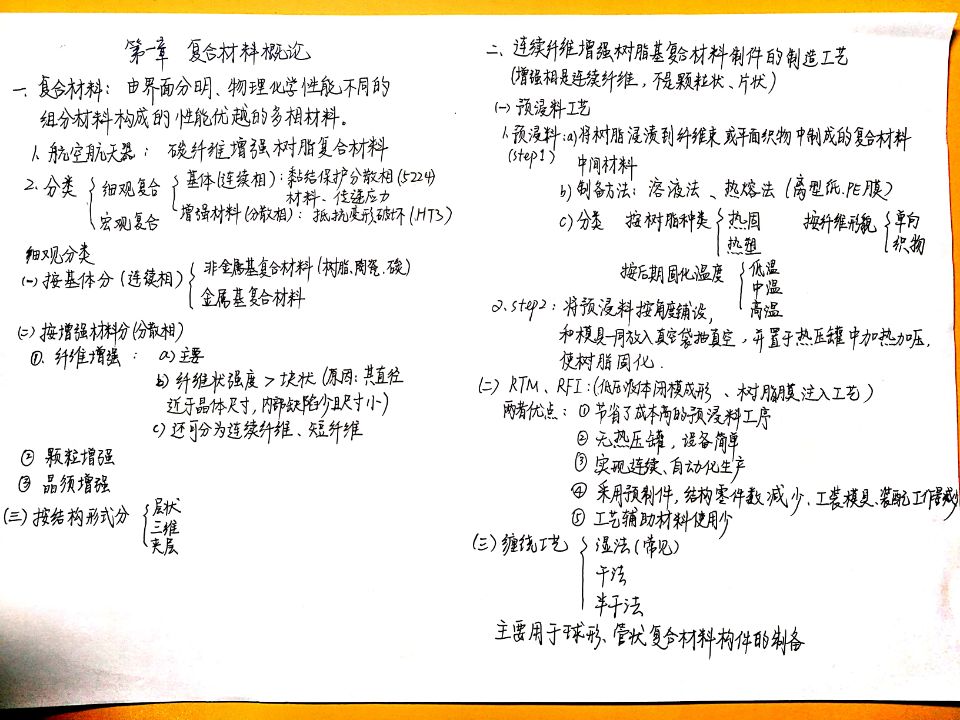 第一章 复合材料概论
一、复合材料：由界面分明、物理化学性能不同的
组分材料构成的性能优越的多相材料。
1. 航空航天器：碳纤维增强树脂复合材料
2. 分类 细观复合 基体(连续相)：黏结保护分散相(5224)
材料、传递应力
宏观复合 增强材料(分散相)：抵抗变形破坏(HT3)
细观分类
(一)按基体分(连续相) 非金属基复合材料(树脂、陶瓷、碳)
金属基复合材料
(二)按增强材料分(分散相)
①.纤维增强： a)主要
b)纤维状强度>块状(原因：其直径
近于晶体尺寸,内部缺陷少且尺寸小)
c)还可分为连续纤维、短纤维
② 颗粒增强
③ 晶须增强
(三)按结构形式分 层状
三维
夹层
二、连续纤维增强树脂基复合材料制件的制造工艺
(增强相是连续纤维，不是颗粒状、片状)
(一)预浸料工艺
1.预浸料：a)将树脂浸渍到纤维束或平面织物中制成的复合材料
(step1) 中间材料
b)制备方法：溶液法、热熔法(离型纸.PE膜)
c)分类 按树脂种类 热固 按纤维形貌 单向
热塑 织物
按后期固化温度 低温
中温
高温
2.step2：将预浸料按角度铺设,
和模具一同放入真空袋抽真空，并置于热压罐中加热加压.
使树脂固化.
(二)RTM、RFI：(低压液体闭模成形、树脂膜注入工艺)
两者优点：①节省了成本高的预浸料工序
② 无热压罐，设备简单
③ 实现连续、自动化生产
④ 采用预制件,结构零件数减少、工装模具、装配工作量减少
⑤ 工艺辅助材料使用少
(三)缠绕工艺 湿法(常见)
干法
半干法
主要用于球形、管状复合材料构件的制备